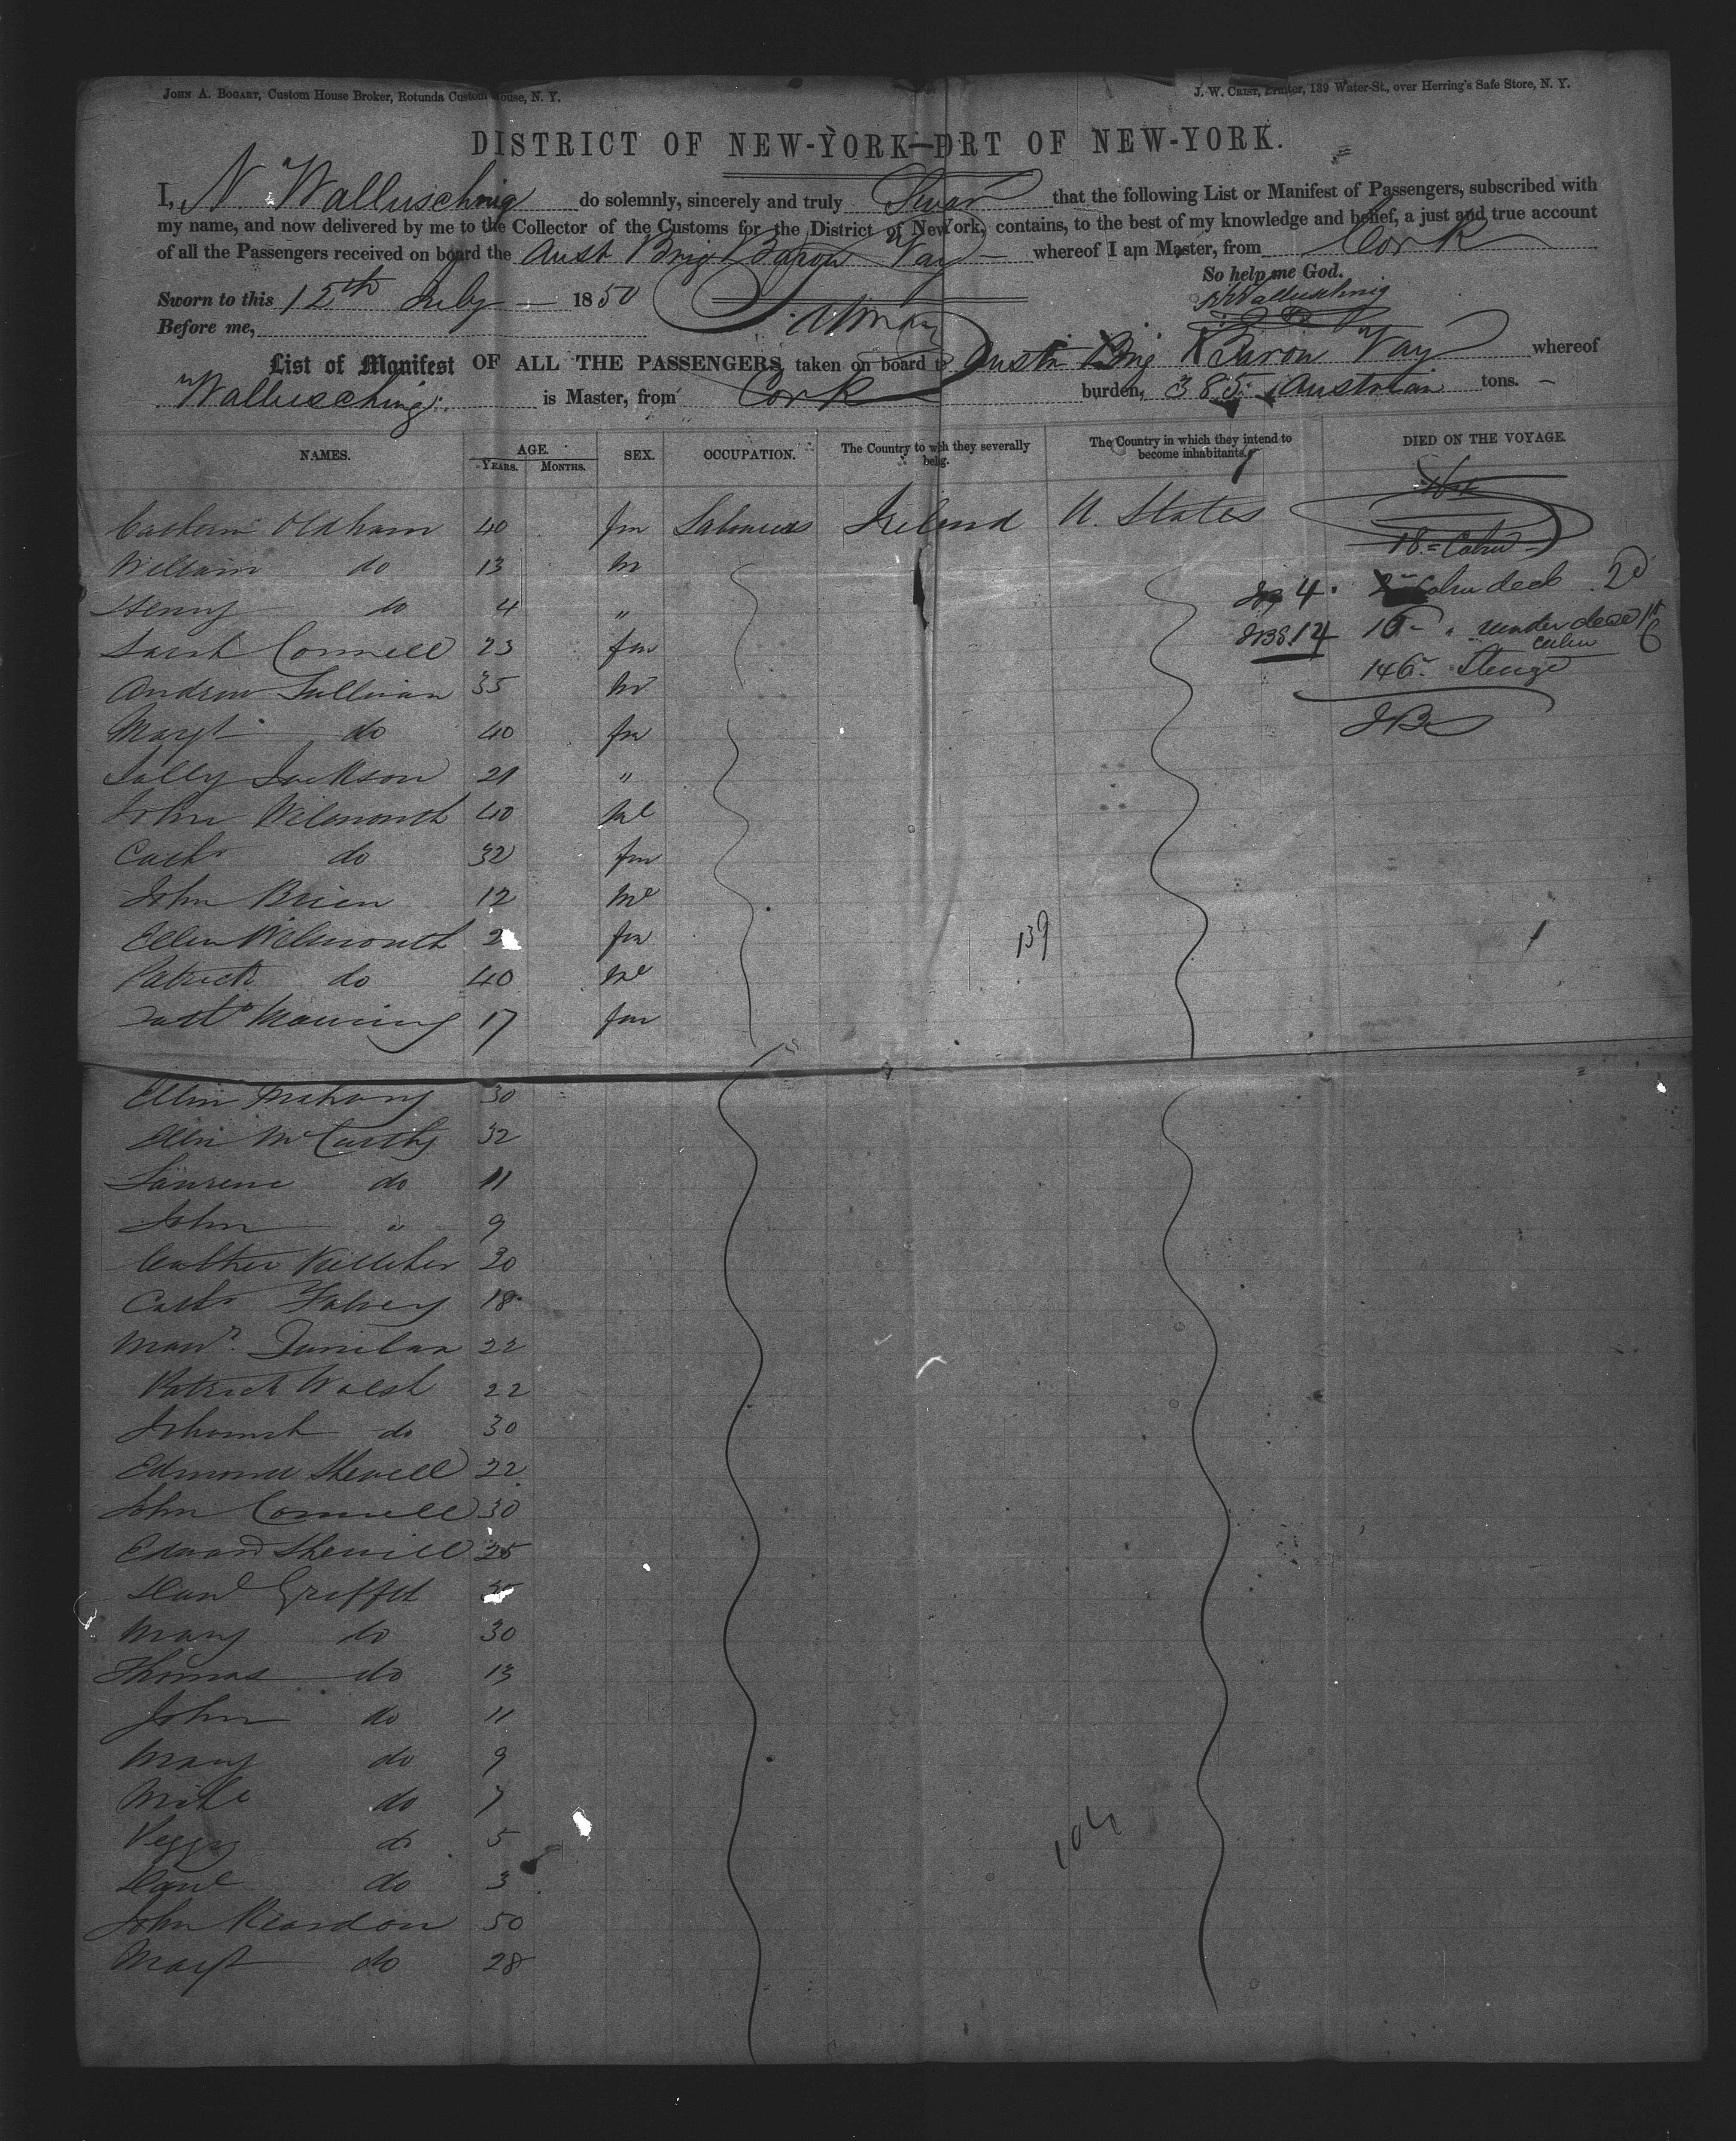 JOHN A. BOGART, Custom House Broker, Rotunda Custom House, N. Y.
J. W. CRIST, Printer, 189 Water-St., over Herring's Safe Store, N. Y.
DISTRICT OF NEW-YORK—PORT OF NEW-YORK.
I, N. Walluschnig do solemnly, sincerely and truly Swear that the following List or Manifest of Passengers, subscribed with
my name, and now delivered by me to the Collector of the Customs for the District of New York, contains, to the best of my knowledge and belief, a just and true account
of all the Passengers received on board the Aust Brig Baron Vay whereof I am Master, from Cork
So help me God.
Sworn to this 12th July 1850
N Walluschnig
Before me,
List of Manifest OF ALL THE PASSENGERS taken on board the Austn Brig Baron Vay whereof
Walluschnig is Master, from Cork burden, 385 Austrian tons.
NAMES. AGE. SEX. OCCUPATION. The Country to which they severally belong. The Country in which they intend to become inhabitants. DIED ON THE VOYAGE.
YEARS. MONTHS.
Oldham 40 fm Labourers Ireland U. States
18 = Cabin
William do 13 m
4. Cabin deck 2d
Henry do 4 "
14 10 " under deck 1st 6
cabin
Sarah Connell 23 fm
146 Steerage
Andrew Sullivan 35 m
JBS
Margt do 40 fm
Sally Jackson 21 "
John Wilmouth 40 ml
Cath do 32 fm
John Brien 12 ml
Ellen Wilmouth 2 fm
139
Patrick do 40 ml
17 fm
Ellin Mahony 30
Ellin McCarthy 32
Laurene do 11
John " 9
Killiher 20
Cathr Falvey 18
22
Patrick Walsh 22
Johannah do 30
Edmond Shewell 22
John Connell 30
Edward Shewill 25
Danl Griffet
Mary do 30
Thomas do 13
John do 11
Mary do 9
Mike do 7
Peggy do 5
104
Danl do 3
John Reardon 50
Margt do 28